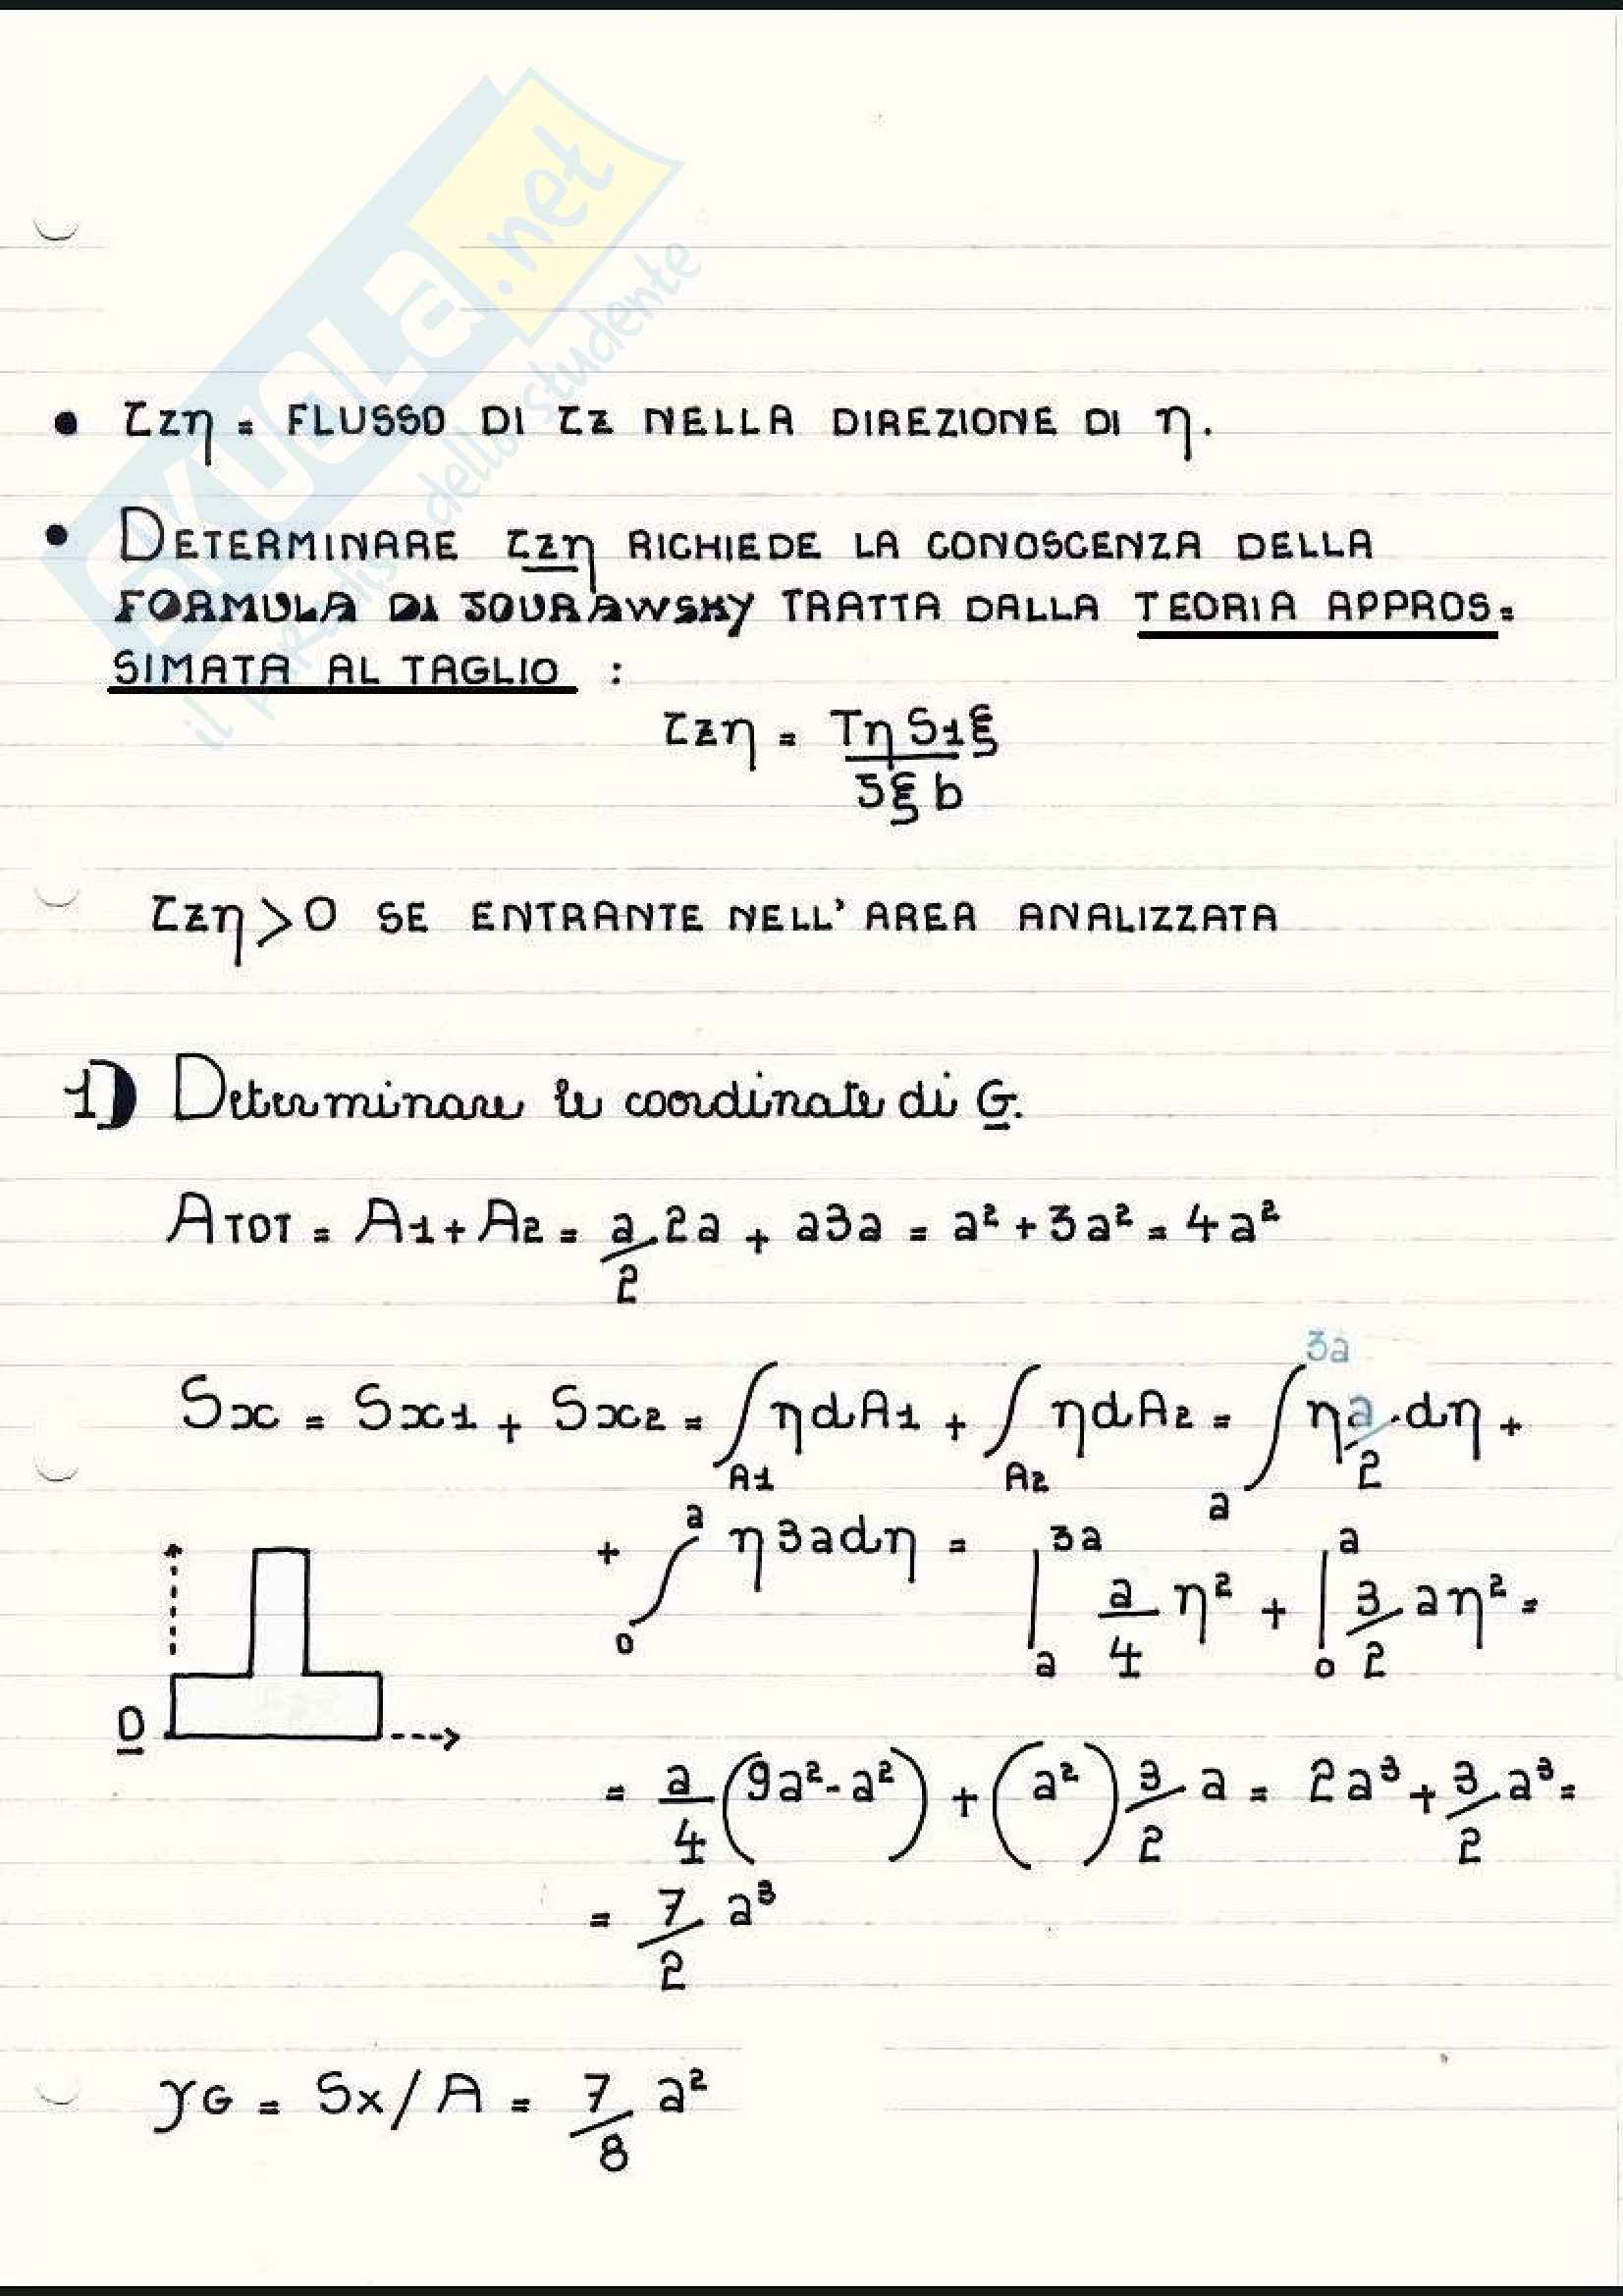 SKUOLA.net
il paradiso dello studente
• τzη = FLUSSO DI τz NELLA DIREZIONE DI η.
• DETERMINARE τzη RICHIEDE LA CONOSCENZA DELLA
FORMULA DI JOURAWSKY TRATTA DALLA TEORIA APPROS=
SIMATA AL TAGLIO :
τzη = Tη S1ξ / Jξ b
τzη > 0 SE ENTRANTE NELL' AREA ANALIZZATA
1) Determinare le coordinate di G.
ATOT = A1 + A2 = a/2 · 2a + a3a = a² + 3a² = 4a²
Sx = Sx1 + Sx2 = ∫A1 ηdA1 + ∫A2 ηdA2 = ∫a^3a η a/2 · dη +
+ ∫0^a η3adη = |a^3a a/4 η² + |0^a 3/2 aη² =
O
= a/4 (9a² - a²) + (a²) 3/2 a = 2a³ + 3/2 a³ =
= 7/2 a³
yG = Sx/A = 7/8 a²